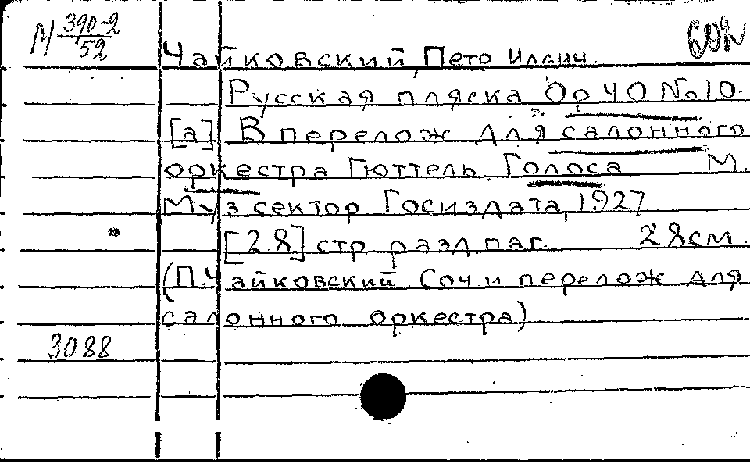 М 390-2
52
Чайковский, Петр Ильич.
Русская пляска Op 40 № 10.
[а] В перелож для салонного
оркестра Гюттель. Голоса М.
Муз сектор Госиздата, 1927
[28] стр разд. паг. 28см.
(П. Чайковский Соч и перелож для
салонного оркестра)
3088